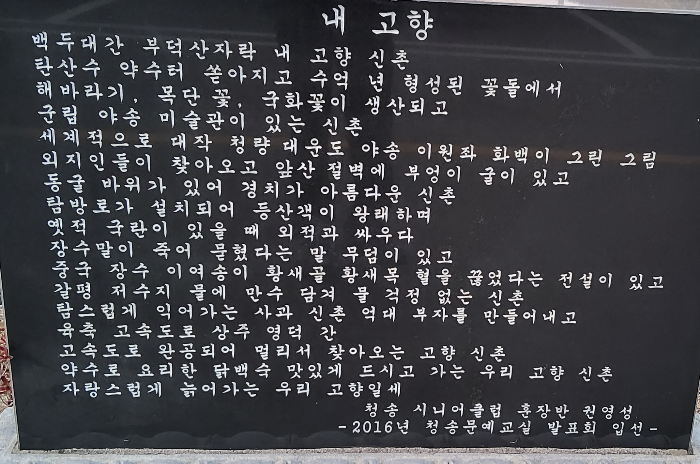 내 고향
백두대간 부덕산자락 내 고향 신촌
탄산수 약수터 쏟아지고 수억 년 형성된 꽃돌에서
해바라기, 목단 꽃, 국화꽃이 생산되고
군립 야송 미술관이 있는 신촌
세계적으로 대작 청량 대운도 야송 이원좌 화백이 그린 그림
외지인들이 찾아오고 앞산 절벽에 부엉이 굴이 있고
동굴 바위가 있어 경치가 아름다운 신촌
탐방로가 설치되어 등산객이 왕래하며
옛적 국란이 있을 때 외적과 싸우다
장수말이 죽어 묻혔다는 말 무덤이 있고
중국 장수 이여송이 황새골 황새목 혈을 끊었다는 전설이 있고
갈평 저수지 물에 만수 담겨 물 걱정 없는 신촌
탐스럽게 익어가는 사과 신촌 억대 부자를 만들어내고
육축 고속도로 상주 영덕 간
고속도로 완공되어 멀리서 찾아오는 고향 신촌
약수로 요리한 닭백숙 맛있게 드시고 가는 우리 고향 신촌
자랑스럽게 늙어가는 우리 고향일세
청송 시니어클럽 훈장반 권영성
-2016년 청송문예교실 발표회 입선-